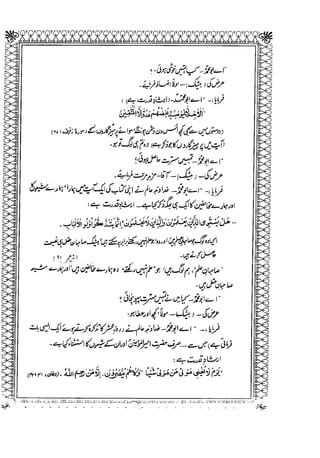 "اے ابو محمد۔ کیا تمہیں خوشی ہوئی۔؟
عرض کی (بیشک)۔ مولا اضافہ فرمائیے۔
فرمایا:۔ "اے ابو محمد۔ (ارشادِ قدرت ہے):
"اَلْاَخِلَّاءُ يَوْمَئِذٍ بَعْضُهُمْ لِبَعْضٍ عَدُوٌّ اِلَّا الْمُتَّقِيْنَ
دوستوں میں سے بھی کچھ اُس دن دشمن ہونگے سوائے پرہیزگاروں کے (سورہ زخرف،
آیت میں پرہیزگاروں کا جو ذکر ہے) وہ تم ہی لوگ تو ہو۔
"اے ابو محمد۔ تمہیں مسرت حاصل ہوئی؟
عرض کی۔ (بیشک)۔ آقا۔ مزید مرحمت فرمائیے۔
فرمایا:۔ "اے ابو محمد۔ خداوندِ عالم نے اپنی کتاب کی ایک آیت میں ہمارا، ہمارے شیعوں کا
اور ہمارے مخالفین کا ایک ہی جگہ ذکر کیا ہے۔ ارشادِ قدرت ہے:
هَلْ يَسْتَوِى الَّذِيْنَ يَعْلَمُوْنَ وَالَّذِيْنَ لَا يَعْلَمُوْنَ اِنَّمَا يَتَذَكَّرُ اُولُوا الْاَلْبَابِ۔
کیا وہ لوگ جو صاحبانِ علم ہیں اور وہ جو علم نہیں رکھتے برابر ہو سکتے ہیں؟ بیشک صاحبانِ عقل ہی نصیحت
حاصل کرتے ہیں۔ (زمر ؍ ۹)
"صاحبانِ علم" ہم لوگ ہیں، جو "علم نہیں رکھتے" وہ ہمارے مخالفین ہیں اور ہمارے شیعہ
صاحبانِ عقل ہیں۔
"اے ابو محمد۔ کیا میں نے تمہیں مسرت پہنچائی؟
عرض کی۔ (بیشک) مولا۔ کچھ اور عطا ہو:
فرمایا:۔ "اے ابو محمد۔ خداوندِ عالم نے روزِ محشر کا تذکرہ کرتے ہوئے ایک ایسی بات
فرمائی ہے جس سے۔ صرف حضرت امیر المومنینؑ اور ان کے شیعوں کا استثناء کیا ہے۔
ارشادِ قدرت ہے:
"يَوْمَ لَا يُغْنِىْ مَوْلًى عَنْ مَّوْلًى شَيْئًا وَّلَا هُمْ يُنْصَرُوْنَ۔ اِلَّا مَنْ رَّحِمَ اللهُ۔ (دخان،